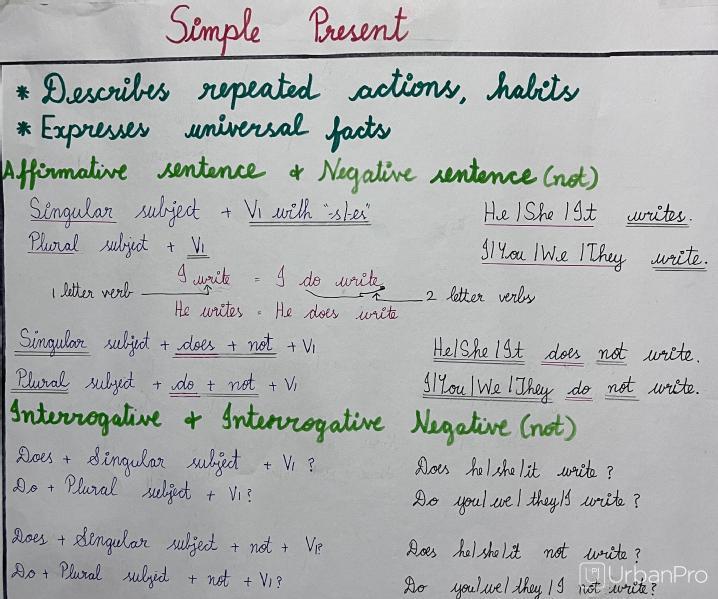 Simple Present
* Describes repeated actions, habits
* Expresses universal facts
Affirmative sentence & Negative sentence (not)
Singular subject + V1 with "-s/-es" He/She/It writes.
Plural subject + V1 I/You/We/They write.
I write = I do write
1 letter verb 2 letter verbs
He writes = He does write
Singular subject + does + not + V1 He/She/It does not write.
Plural subject + do + not + V1 I/You/We/They do not write.
Interrogative & Interrogative Negative (not)
Does + Singular subject + V1 ? Does he/she/it write ?
Do + Plural subject + V1? Do you/we/they/I write ?
Does + Singular subject + not + V1? Does he/she/it not write ?
Do + Plural subject + not + V1? Do you/we/they/I not write?
UrbanPro